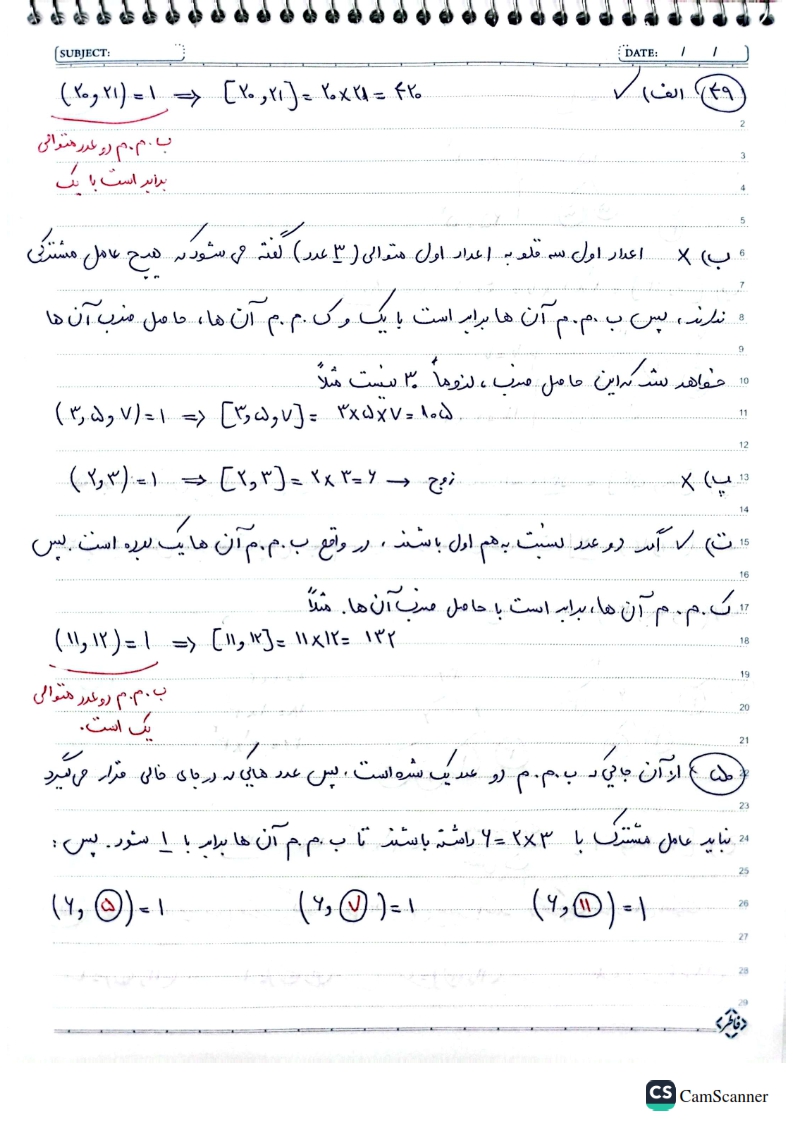 SUBJECT:
DATE: / /
۴۹ الف) ✓ (۲۰ و ۲۱) = ۱ ⇒ [۲۰ و ۲۱] = ۲۰×۲۱ = ۴۲۰
ب.م.م دو عدد متوالی
برابر است با یک
ب) × اعداد اول سه قلو به اعداد اول متوالی (۳ عدد) گفته می شود که هیچ عامل مشترکی
ندارند، پس ب.م.م آن ها برابر است با یک و ک.م.م آن ها، حاصل ضرب آن ها
خواهد شد که این حاصل ضرب، لزوماً ۳۰ نیست مثلاً
(۳ و ۵ و ۷) = ۱ ⇒ [۳ و ۵ و ۷] = ۳×۵×۷ = ۱۰۵
پ) × (۲ و ۳) = ۱ ⇒ [۲ و ۳] = ۲×۳ = ۶ → زوج
ت) ✓ اگر دو عدد نسبت به هم اول باشند، در واقع ب.م.م آن ها یک بوده است. پس
ک.م.م آن ها، برابر است با حاصل ضرب آن ها. مثلاً
(۱۱ و ۱۲) = ۱ ⇒ [۱۱ و ۱۲] = ۱۱×۱۲ = ۱۳۲
ب.م.م دو عدد متوالی
یک است.
۵۰ از آن جایی که ب.م.م دو عدد یک شده است، پس عدد هایی که در جای خالی قرار می گیرد
نباید عامل مشترک با ۶ = ۲×۳ داشته باشند تا ب.م.م آن ها برابر با ۱ شود. پس:
(۶ و ۱۱) = ۱ (۶ و ۷) = ۱ (۶ و ۵) = ۱
2
3
4
5
6
7
8
9
10
11
12
13
14
15
16
17
18
19
20
21
22
23
24
25
26
27
28
29
فاطر
CS CamScanner